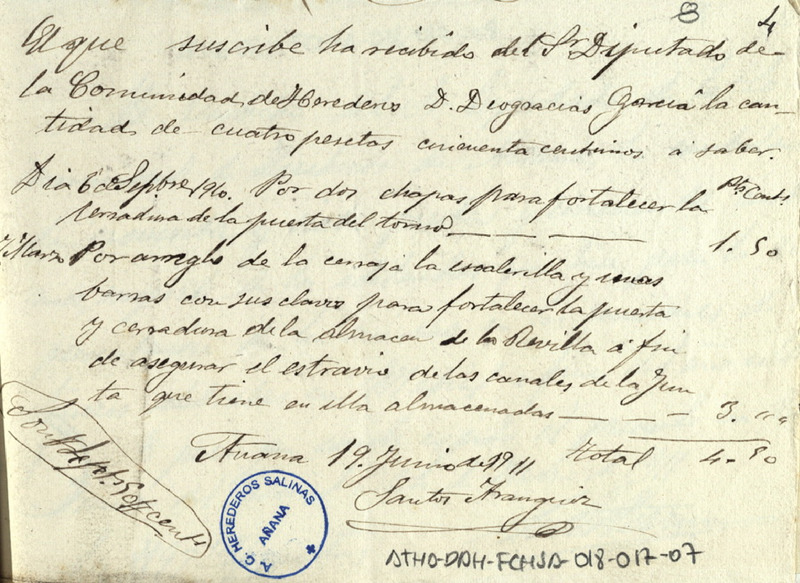 8 4
El que suscribe ha recibido del Sr Diputado de
la Comunidad de Herederos D. Deogracias Garcia la can-
tidad de cuatro pesetas cincuenta centimos á saber.
Pts Cents
Dia 6 de Sepbre 1910. Por dos chapas para fortalecer la
cerradura de la puerta del torno 1. 50
Marzo Por arreglo de la cerraja la escalerilla y unas
barras con sus clavos para fortalecer la puerta
y cerradura de la almacen de la Revilla á fin
de asegurar el estravio de las canales de la Jun
ta que tiene en ella almacenadas 3. " "
total 4. 50
Añana 19. Junio de 1911
Santos Aranguiz
Son 4 pts. 50 cents
A. G. HEREDEROS SALINAS
AÑANA
ATHA-DAH-FCHSA-018-017-07